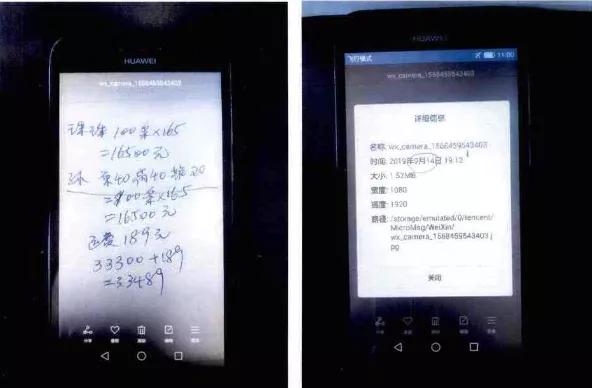 HUAWEI
wx_camera_1568459543403
珠珠 100条×165
=16500元
=100条×165
=16500元
运费 189元
33300+189
=33489
HUAWEI
飞行模式
11:00
wx_camera_1568459543403
详细信息
名称: wx_camera_1568459543403
时间: 2019年9月14日 19:12
大小: 1.52MB
宽度: 1080
高度: 1920
路径: /storage/emulated/0/tencent/
MicroMsg/WeiXin/
wx_camera_1568459543403.j
pg
关闭